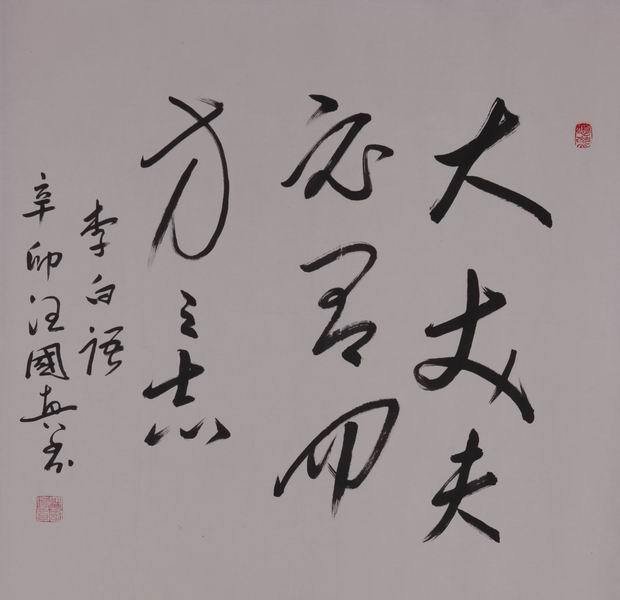 大丈夫
必有四
方之志
李白语
辛卯汪國真书